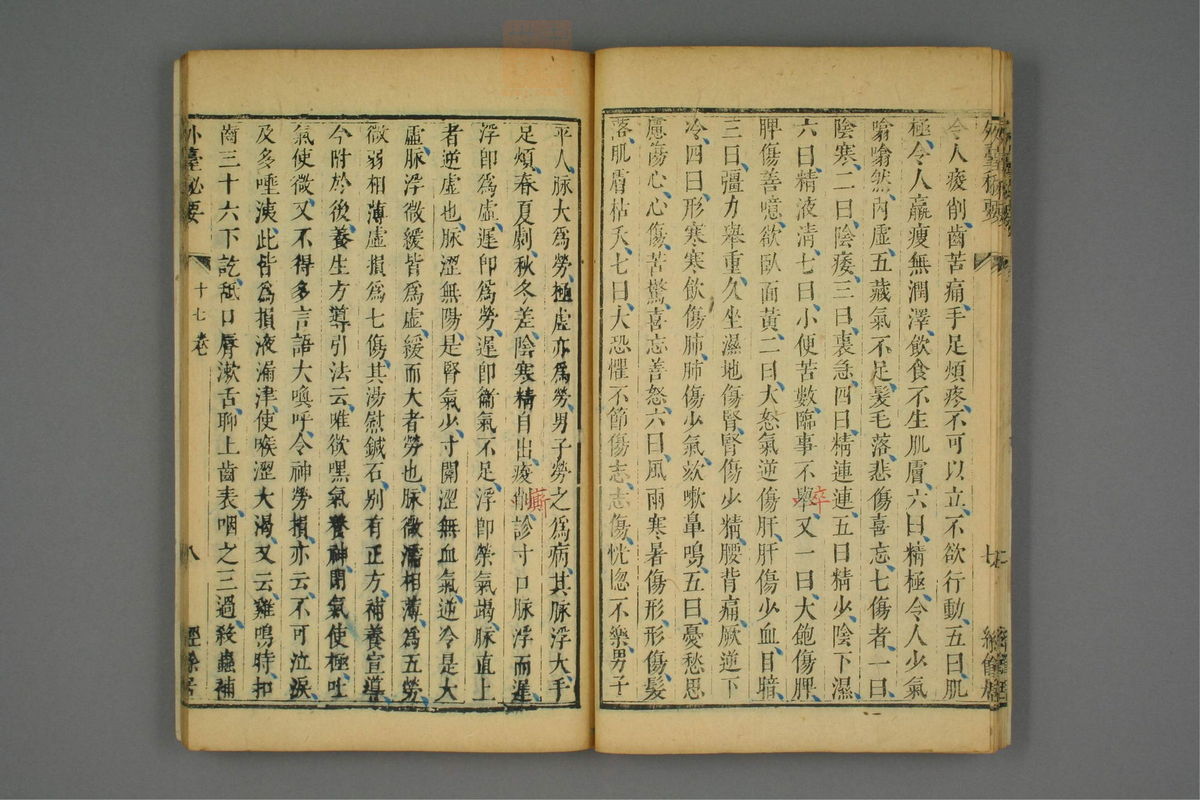 外臺秘要
七
經餘居
令人痠削齒苦痛手足煩疼不可以立不欲行動五曰肌
極令人羸瘦無潤澤飲食不生肌膚六曰精極令人少氣
噏噏然內虛五藏氣不足髮毛落悲傷喜忘七傷者一曰
陰寒二曰陰痿三曰裏急四曰精連連五曰精少陰下濕
六曰精液清七曰小便苦數臨事不舉又一曰大飽傷脾
卒
脾傷善噫欲臥面黃二曰大怒氣逆傷肝肝傷少血目暗
三曰彊力舉重久坐濕地傷腎腎傷少精腰背痛厥逆下
冷四曰形寒寒飲傷肺肺傷少氣欬嗽鼻鳴五曰憂愁思
慮傷心心傷苦驚喜忘善怒六曰風雨寒暑傷形形傷髮
落肌膚枯夭七曰大恐懼不節傷志志傷恍惚不樂男子
平人脉大爲勞極虛亦爲勞男子勞之爲病其脉浮大手
足煩春夏劇秋冬差陰寒精自出痠削診寸口脉浮而遲
浮卽爲虛遲卽爲勞遲卽衞氣不足浮卽榮氣竭脉直上
者逆虛也脉澀無陽是腎氣少寸關澀無血氣逆冷是大
虛脉浮微緩皆爲虛緩而大者勞也脉微濡相薄爲五勞
微弱相薄虛損爲七傷其湯熨鍼石別有正方補養宣導
今附於後養生方導引法云唯欲嘿氣養神閉氣使極吐
氣使微又不得多言語大喚呼令神勞損亦云不可泣淚
及多唾洟此皆爲損液漏津使喉澀大渴又云雞鳴時扣
齒三十六下訖舐口脣漱舌聊上齒表咽之三過殺蟲補
外臺秘要
十七卷
八
經餘居